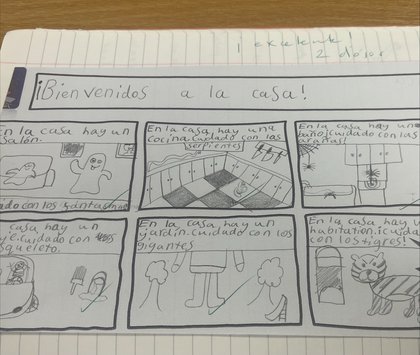 1 excelente!
2 dolor
¡Bienvenidos a la casa!
En la casa hay un
salón.
ado con los fantasmas
En la casa hay una
cocina. Cuidado con las
serpientes
En la casa hay un
baño. ¡cuidado con las
arañas!
En la casa hay un
e. Cuidado con
squeleto.
En la casa hay un
yardin. Cuidado con los
gigantes
En la casa hay u
habitation. ¡cuida
con los tigres!